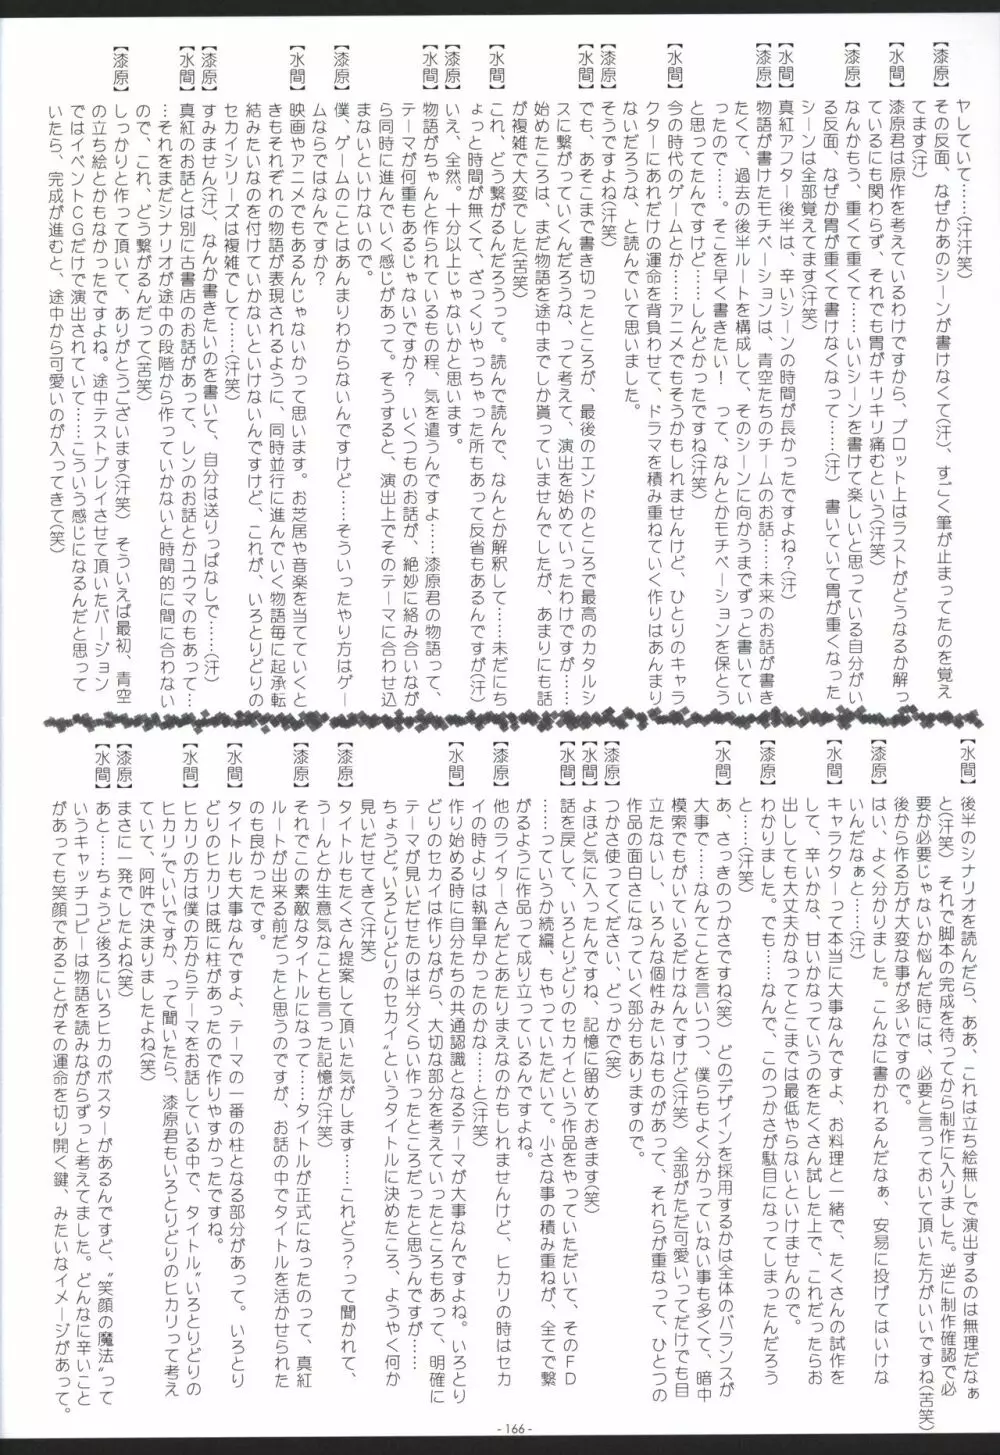 ヤしていて……(汗汗笑)
【漆原】
その反面、なぜかあのシーンが書けなくて(汗)、すごく筆が止まってたのを覚え
てます(汗)
【水間】
漆原君は原作を考えているわけですから、プロット上はラストがどうなるか解っ
ているにも関わらず、それでも胃がキリキリ痛むという(汗笑)
【漆原】
なんかもう、重くて重くて……いいシーンを書けて楽しいと思っている自分がい
る反面、なぜか胃が重くて書けなくなって……(汗) 書いていて胃が重くなった
シーンは全部覚えてます(汗笑)
【水間】
真紅アフター後半は、辛いシーンの時間が長かったですよね?(汗)
【漆原】
物語が書けたモチベーションは、青空たちのチームのお話……未来のお話が書き
たくて、過去の後半ルートを構成して、そのシーンに向かうまでずっと書いてい
ったので……。そこを早く書きたい! って、なんとかモチベーションを保とう
と思ってたんですけど……しんどかったですね(汗笑)
【水間】
今の時代のゲームとか……アニメでもそうかもしれませんけど、ひとりのキャラ
クターにあれだけの運命を背負わせて、ドラマを積み重ねていく作りはあんまり
ないだろうな、と読んでいて思いました。
【漆原】
そうですよね(汗笑)
【水間】
でも、あそこまで書き切ったところが、最後のエンドのところで最高のカタルシ
スに繋がっていくんだろうな、って考えて、演出を始めていったわけですが……
始めたころは、まだ物語を途中までしか貰っていませんでしたが、あまりにも話
が複雑で大変でした(苦笑)
【水間】
これ、どう繋がるんだろうって。読んで読んで、なんとか解釈して……未だにち
ょっと時間が無くて、ざっくりやっちゃった所もあって反省もあるんですが(汗)
【漆原】
いえ、全然。十分以上じゃないかと思います。
【水間】
物語がちゃんと作られているもの程、気を遣うんですよ……漆原君の物語って、
テーマが何重もあるじゃないですか? いくつものお話が、絶妙に絡み合いなが
ら同時に進んでいく感じがあって。そうすると、演出上でそのテーマに合わせ込
まないといけないので。
【漆原】
僕、ゲームのことはあんまりわからないんですけど……そういったやり方はゲー
ムならではなんですか?
【水間】
映画やアニメでもあるんじゃないかって思います。お芝居や音楽を当てていくと
きもそれぞれの物語が表現されるように、同時並行に進んでいく物語毎に起承転
結みたいなのを付けていかないといけないんですけど、これが、いろとりどりの
セカイシリーズは複雑でして……(汗笑)
【漆原】
すみません(汗)、なんか書きたいのを書いて、自分は送りっぱなしで……(汗)
【水間】
真紅のお話とは別に古書店のお話があって、レンのお話とかユウマのもあって…
…それをまだシナリオが途中の段階から作っていかないと時間的に間に合わない
ので、これ、どう繋がるんだって(苦笑)
【漆原】
しっかりと作って頂いて、ありがとうございます(汗笑) そういえば最初、青空
の立ち絵とかもなかったですよね。途中テストプレイさせて頂いたバージョン
ではイベントCGだけで演出されていて……こういう感じになるんだと思って
いたら、完成が進むと、途中から可愛いのが入ってきて(笑)
【水間】
後半のシナリオを読んだら、ああ、これは立ち絵無しで演出するのは無理だなぁ
と(汗笑) それで脚本の完成を待ってから制作に入りました。逆に制作確認で必
要か必要じゃないか悩んだ時には、必要と言っておいて頂いた方がいいですね(苦笑)
後から作る方が大変な事が多いですので。
【漆原】
はい、よく分かりました。こんなに書かれるんだなぁ、安易に投げてはいけな
いんだなぁと……(汗)
【水間】
キャラクターって本当に大事なんですよ、お料理と一緒で、たくさんの試作を
して、辛いかな、甘いかなっていうのをたくさん試した上で、これだったらお
出ししても大丈夫かなってとこまでは最低やらないといけませんので。
【漆原】
わかりました。でも……なんで、このつかさが駄目になってしまったんだろう
と……(汗笑)
【水間】
あ、さっきのつかさですね(笑) どのデザインを採用するかは全体のバランスが
大事で……なんてことを言いつつ、僕らもよく分かっていない事も多くて、暗中
模索でもがいているだけなんですけど(汗笑) 全部がただ可愛いってだけでも目
立たないし、いろんな個性みたいなものがあって、それらが重なって、ひとつの
作品の面白さになっていく部分もありますので。
【漆原】
つかさ使ってください、どっかで(笑)
【水間】
よほど気に入ったんですね、記憶に留めておきます(笑)
【漆原】
話を戻して、いろとりどりのセカイという作品をやっていただいて、そのFD
……っていうか続編、もやっていただいて。小さな事の積み重ねが、全てで繋
がるように作品って成り立っているんですよね。
【漆原】
他のライターさんだとあたりまえなのかもしれませんけど、ヒカリの時はセカ
イの時よりは執筆早かったのかな……と(汗笑)
【水間】
作り始める時に自分たちの共通認識となるテーマが大事なんですよね。いろとり
どりのセカイは作りながら、大切な部分を考えていったところもあって、明確に
テーマが見いだせたのは半分くらい作ったところだったと思うんですが……
ちょうど“いろとりどりのセカイ”というタイトルに決めたころ、ようやく何か
見いだせてきて(汗笑)
【漆原】
タイトルもたくさん提案して頂いた気がします……これどう?って聞かれて、
うーんとか生意気なことも言った記憶が(汗笑)
【漆原】
それでこの素敵なタイトルになって……タイトルが正式になったのって、真紅
ルートが出来る前だったと思うのですが、お話の中でタイトルを活かせられた
のも良かったです。
【水間】
タイトルも大事なんですよ、テーマの一番の柱となる部分があって。いろとり
どりのヒカリは既に柱があったので作りやすかったですね。
【水間】
ヒカリの方は僕の方からテーマをお話している中で、タイトル“いろとりどりの
ヒカリ”でいいですか、って聞いたら、漆原君もいろとりどりのヒカリって考え
ていて、阿吽で決まりましたよね(笑)
【漆原】
まさに一発でしたよね(笑)
【水間】
あと……ちょうど後ろにいろヒカのポスターがあるんですど、“笑顔の魔法”って
いうキャッチコピーは物語を読みながらずっと考えてました。どんなに辛いこと
があっても笑顔であることがその運命を切り開く鍵、みたいなイメージがあって。
- 166 -